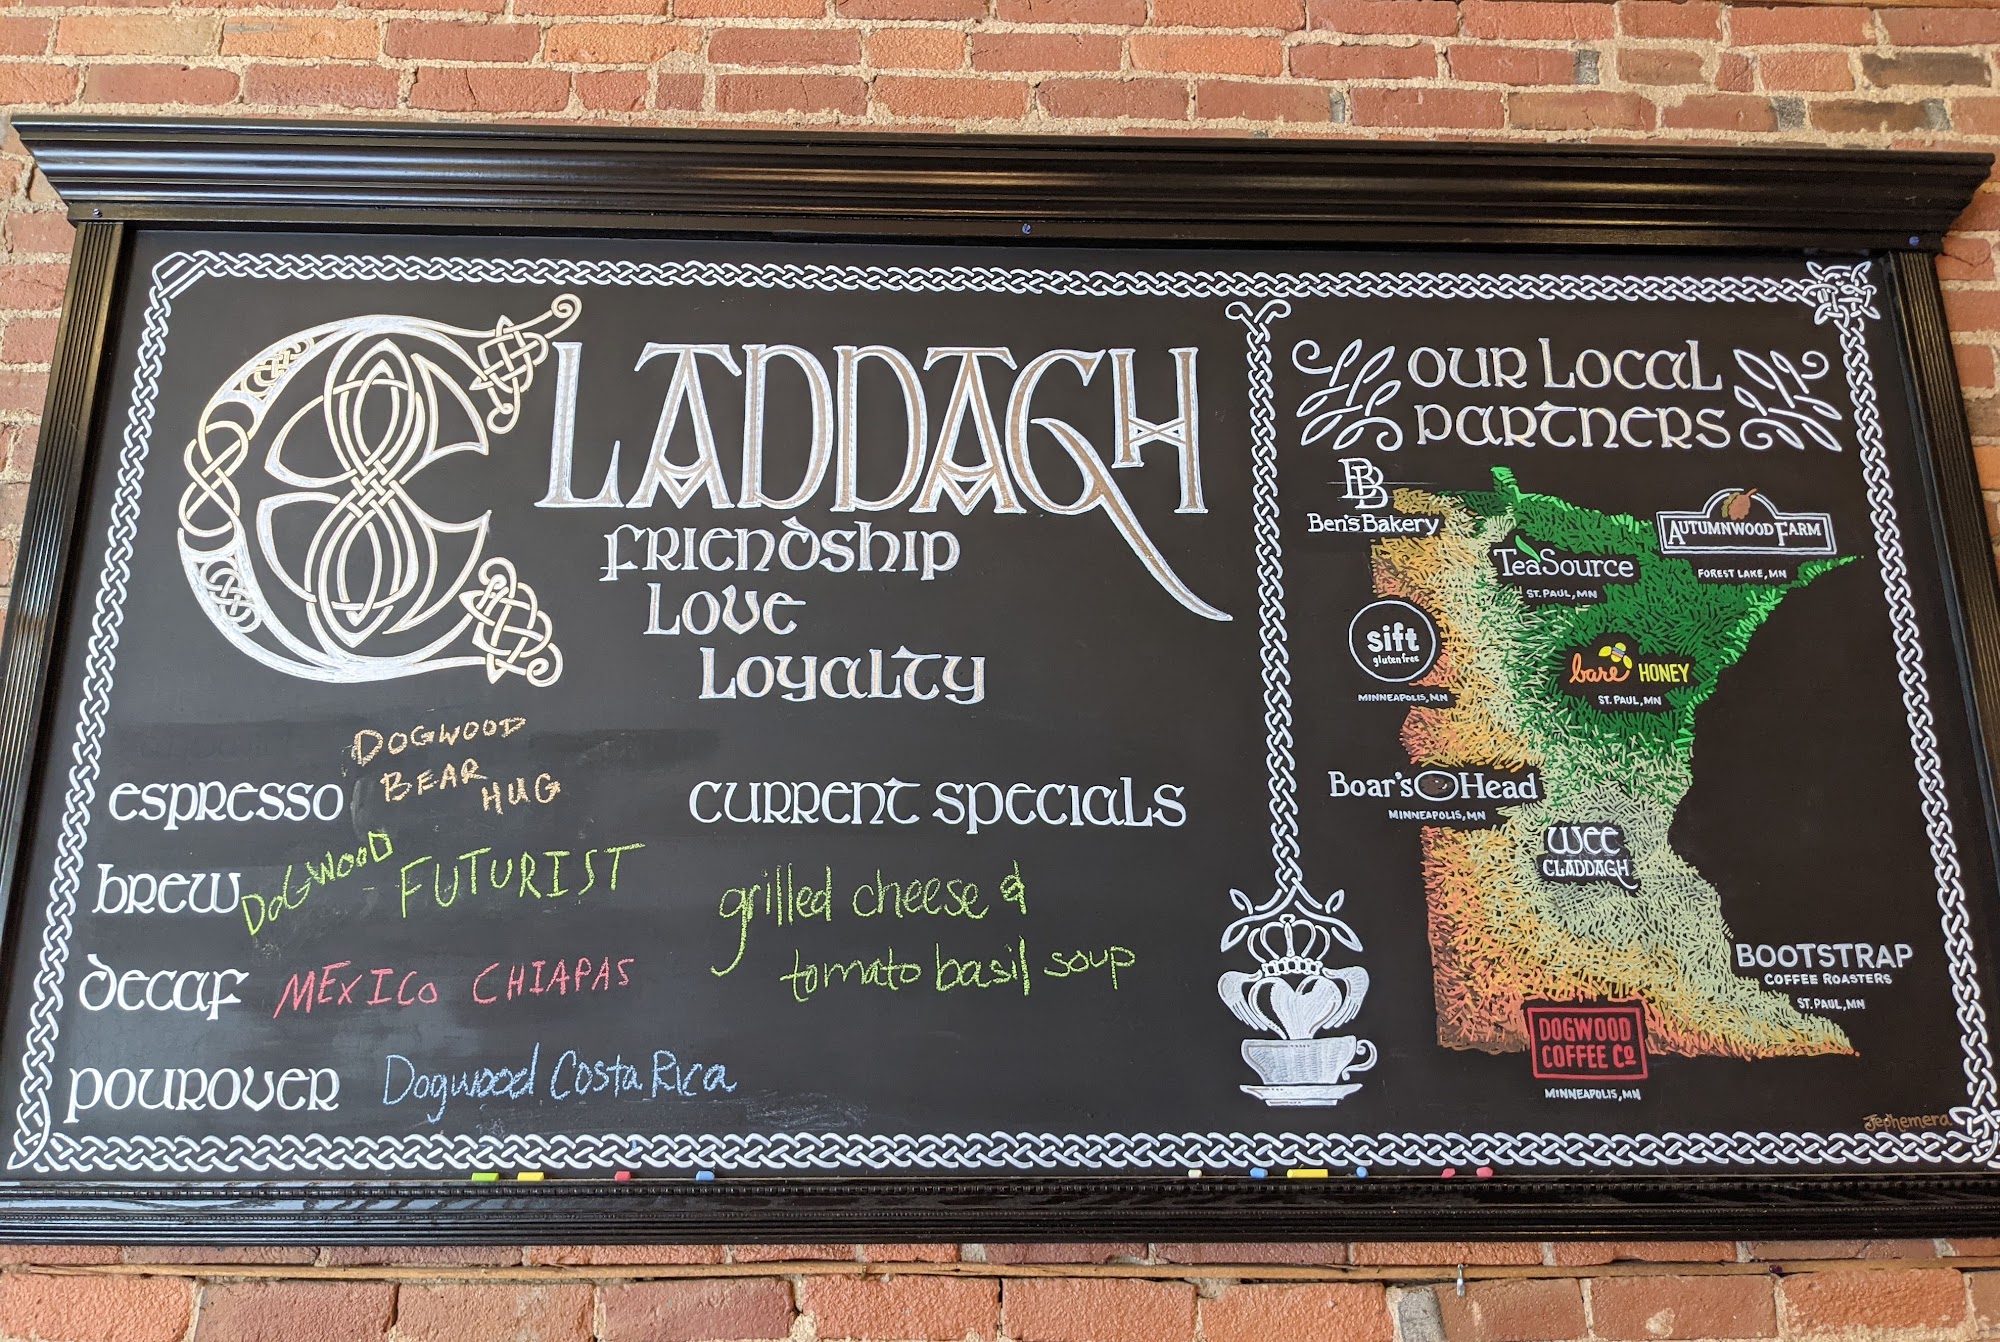 CLADDAGH
FRIENDSHIP
LOVE
LOYALTY
espresso DOGWOOD
BEAR HUG
brew DOGWOOD FUTURIST
decaf MEXICO CHIAPAS
pourover Dogwood Costa Rica
current specials
grilled cheese &
tomato basil soup
OUR LOCAL
PARTNERS
BB
Ben's Bakery
AUTUMNWOOD FARM
FOREST LAKE, MN
TeaSource
ST. PAUL, MN
sift
gluten free
MINNEAPOLIS, MN
bare HONEY
ST. PAUL, MN
Boar's Head
MINNEAPOLIS, MN
WEE
CLADDAGH
BOOTSTRAP
COFFEE ROASTERS
ST. PAUL, MN
DOGWOOD
COFFEE Co
MINNEAPOLIS, MN
Jephemera